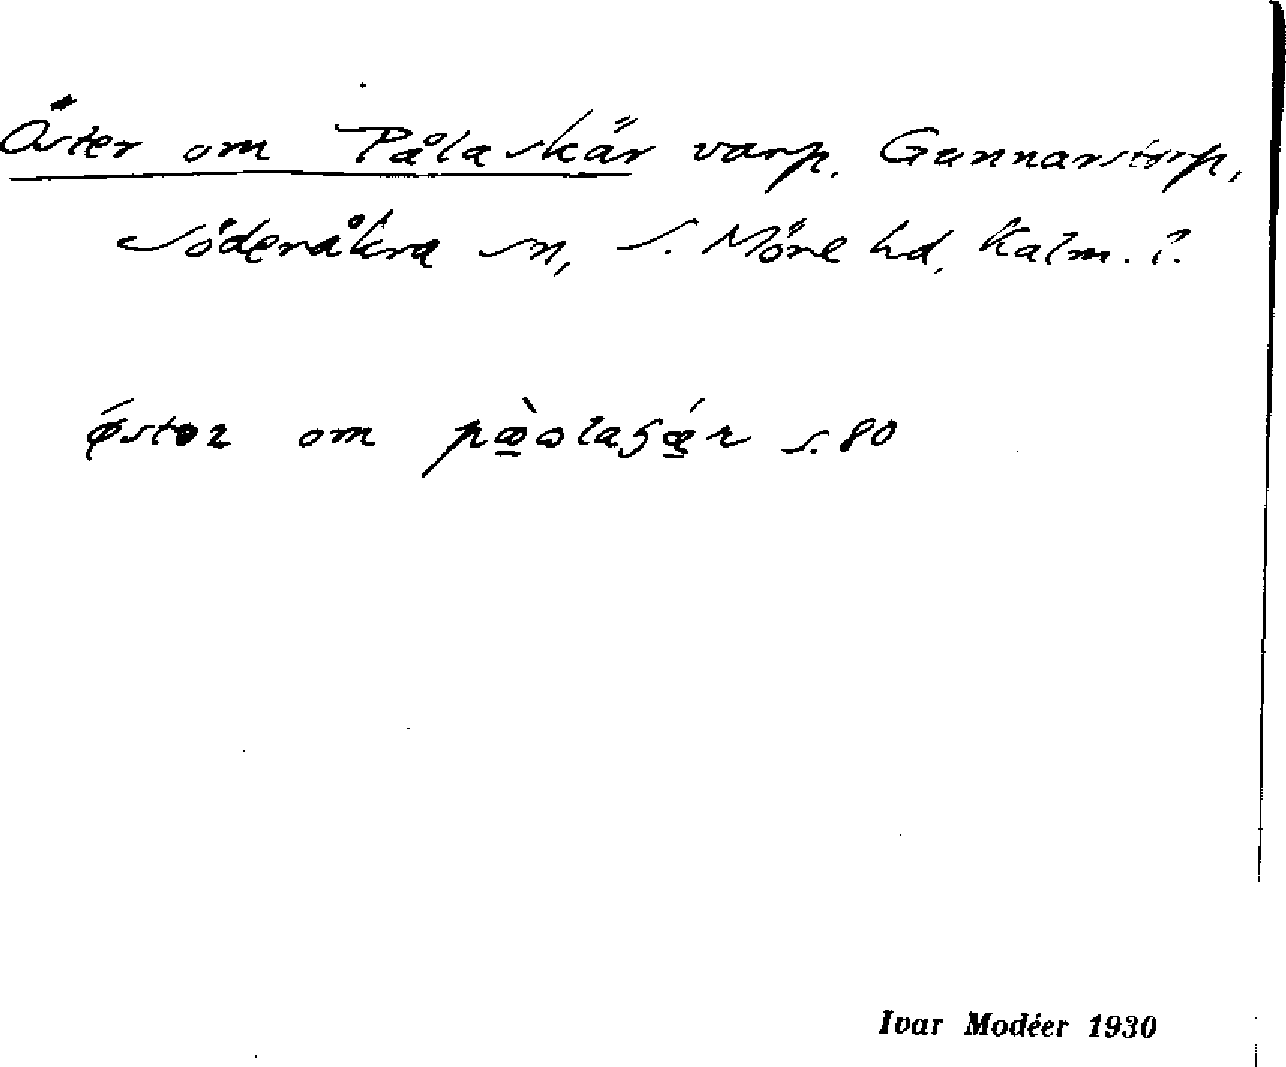 Öster om Pålaskär varp, Gunnarstorp,
Söderåkra sn, S. Möre hd, Kalm. l.
østər om s. 80
Ivar Modéer 1930